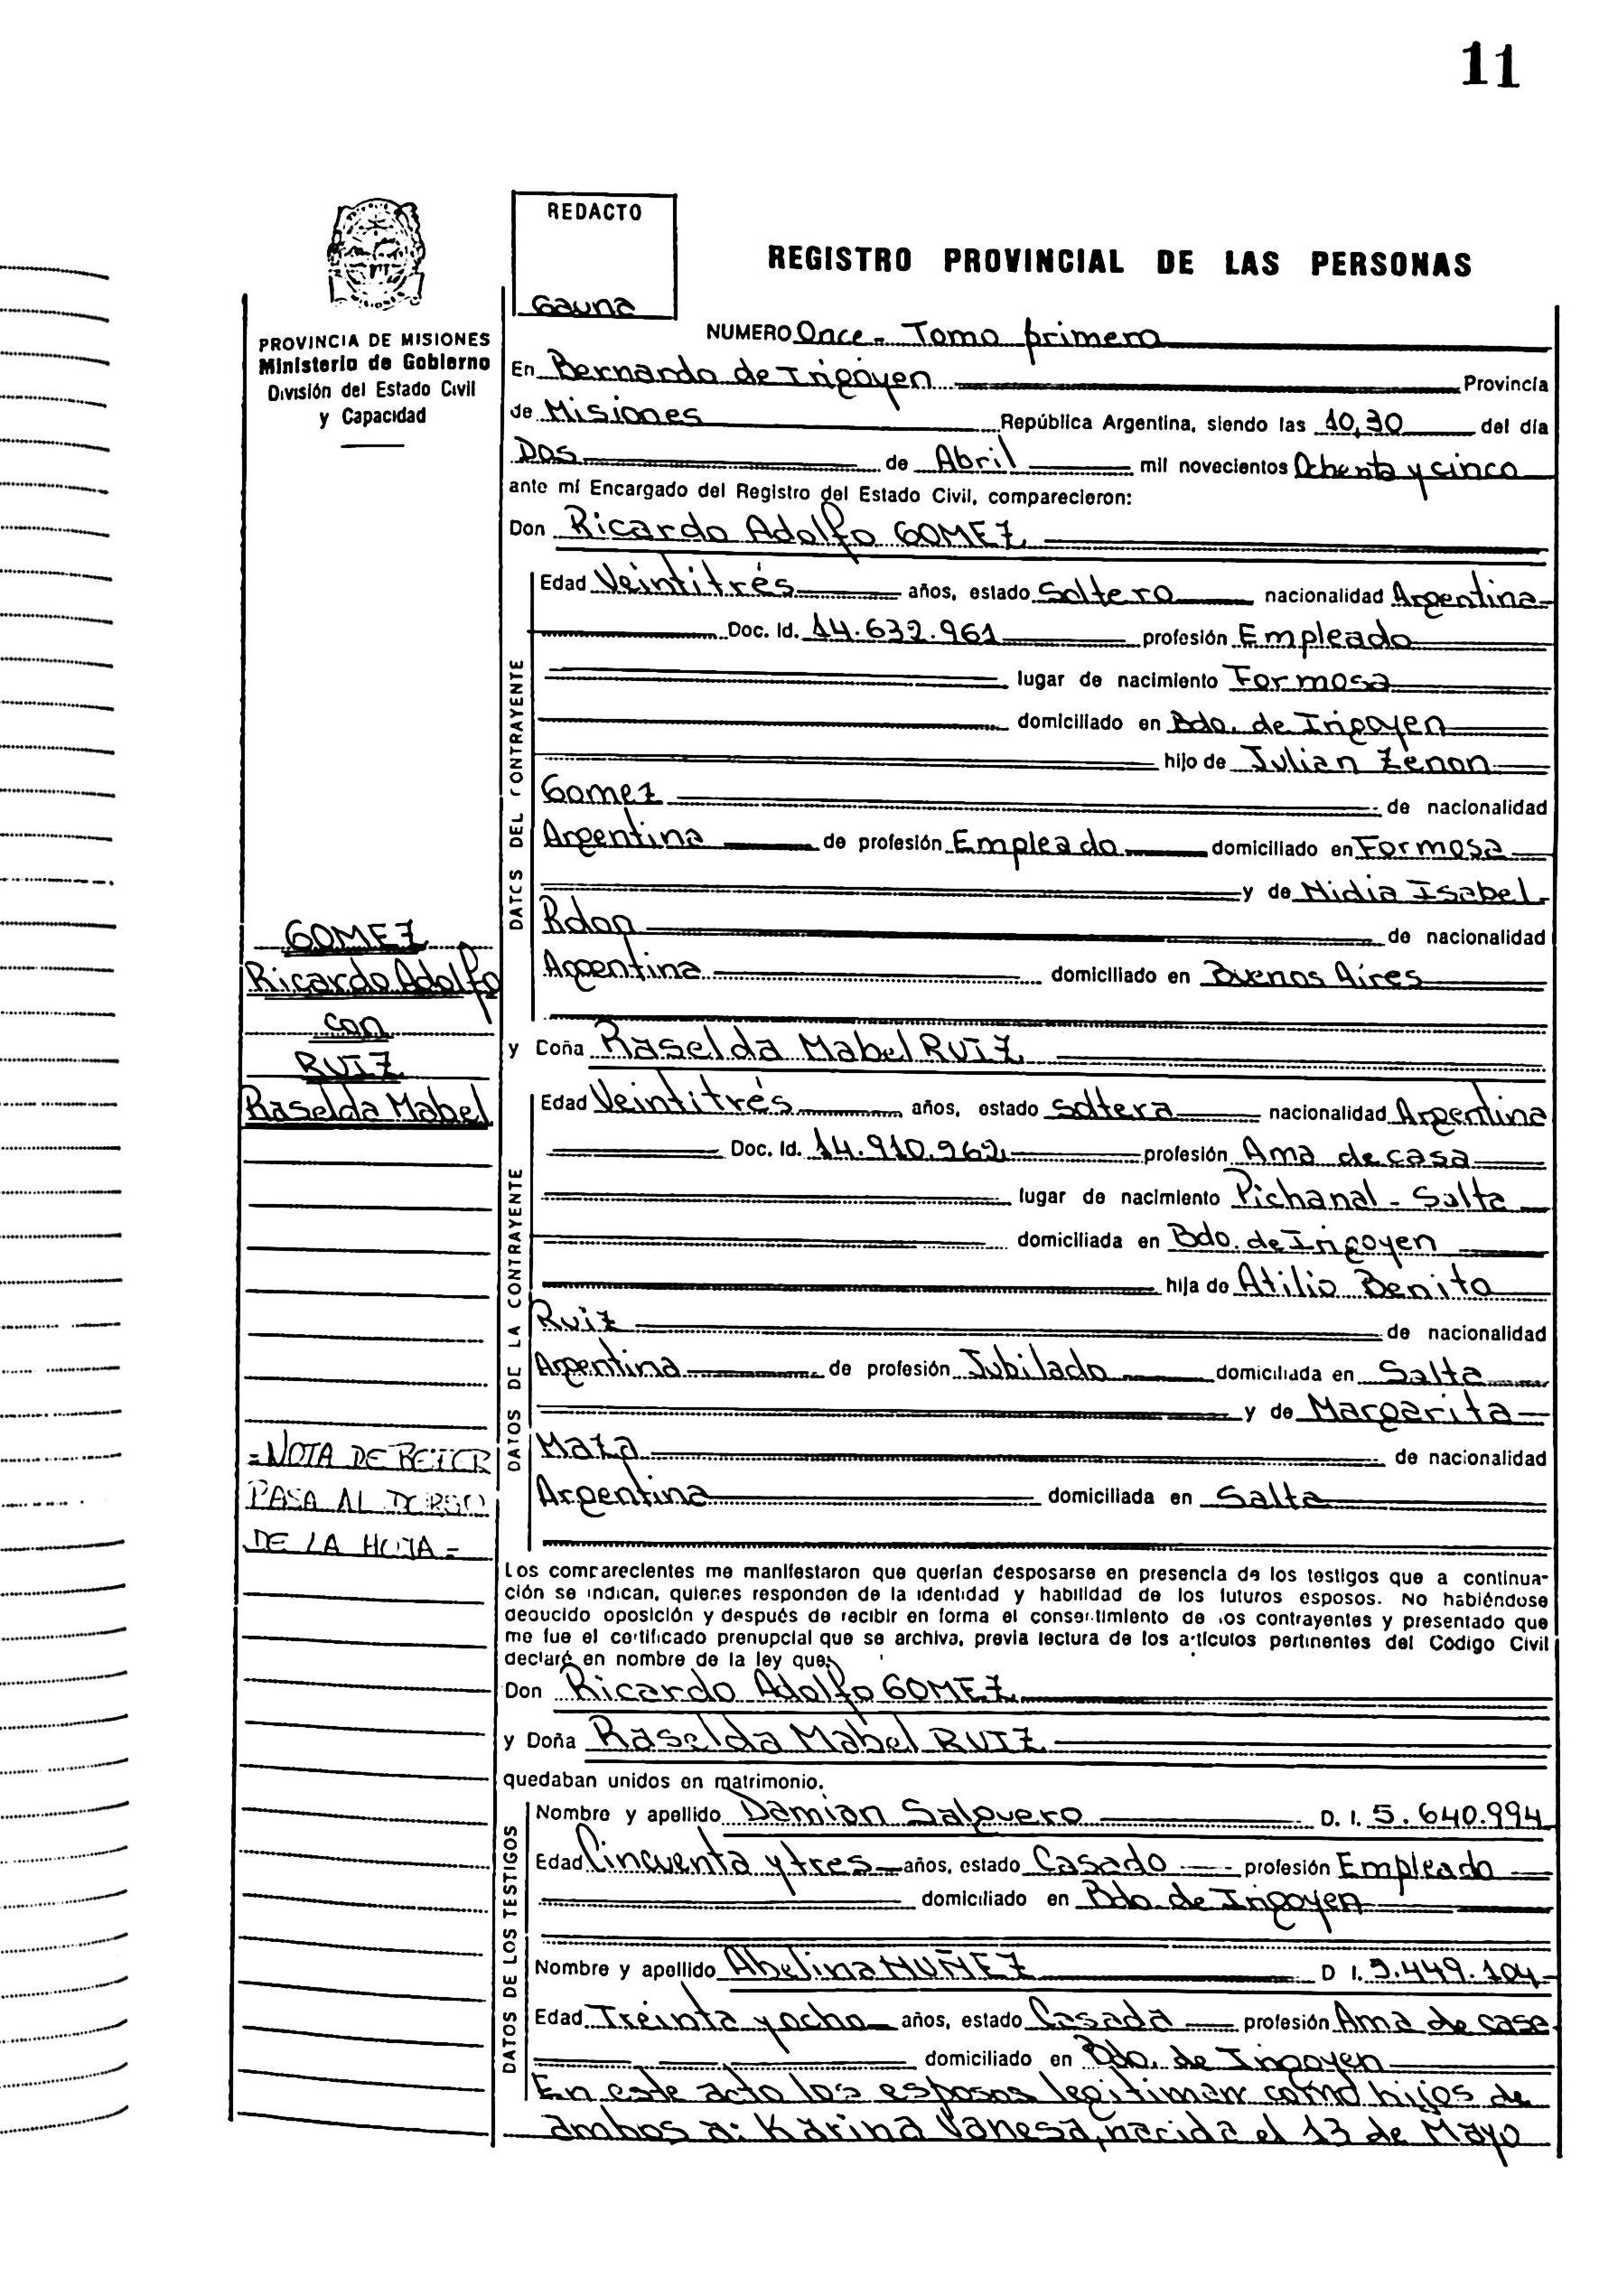 11
REDACTO
Gauna
REGISTRO PROVINCIAL DE LAS PERSONAS
PROVINCIA DE MISIONES
Ministerio de Gobierno
División del Estado Civil
y Capacidad
NUMERO Once - Tomo primero
En Bernardo de Irigoyen Provincia
de Misiones República Argentina, siendo las 10,30 del día
Dos de Abril mil novecientos Ochenta y cinco
ante mí Encargado del Registro del Estado Civil, comparecieron:
Don Ricardo Adolfo GOMEZ
DATOS DEL CONTRAYENTE
Edad Veintitrés años, estado Soltero nacionalidad Argentina
Doc. Id. 14.632.961 profesión Empleado
lugar de nacimiento Formosa
domiciliado en Bdo. de Irigoyen
hijo de Julian Zenon
Gomez de nacionalidad
Argentina de profesión Empleado domiciliado en Formosa
y de Nidia Isabel
de nacionalidad
Argentina domiciliado en Buenos Aires
GOMEZ
Ricardo Adolfo
con
RUIZ
Raselda Mabel
y Doña Raselda Mabel RUIZ
DATOS DE LA CONTRAYENTE
Edad Veintitrés años, estado soltera nacionalidad Argentina
Doc. Id. 14.910.962 profesión Ama de casa
lugar de nacimiento Pichanal - Salta
domiciliada en Bdo. de Irigoyen
hija de Atilio Benito
Ruiz de nacionalidad
Argentina de profesión Jubilado domiciliada en Salta
y de Margarita
Maza de nacionalidad
Argentina domiciliada en Salta
=NOTA DE REFER
PASA AL DORSO
DE LA HOJA=
Los comparecientes me manifestaron que querían desposarse en presencia de los testigos que a continua-
ción se indican, quienes responden de la identidad y habilidad de los futuros esposos. No habiéndose
deducido oposición y después de recibir en forma el consentimiento de los contrayentes y presentado que
me fue el certificado prenupcial que se archiva, previa lectura de los artículos pertinentes del Código Civil
declaré en nombre de la ley que:
Don Ricardo Adolfo GOMEZ
y Doña Raselda Mabel RUIZ
quedaban unidos en matrimonio.
DATOS DE LOS TESTIGOS
Nombre y apellido Damian Salguero D. I. 5.640.994
Edad Cincuenta y tres años, estado Casado profesión Empleado
domiciliado en Bdo. de Irigoyen
Nombre y apellido Abelina NUÑEZ D I. 5.449.104
Edad Treinta y ocho años, estado Casada profesión Ama de casa
domiciliado en Bdo. de Irigoyen
En este acto los esposos legitiman como hijos de
ambos a: Karina Vanesa, nacida el 13 de Mayo